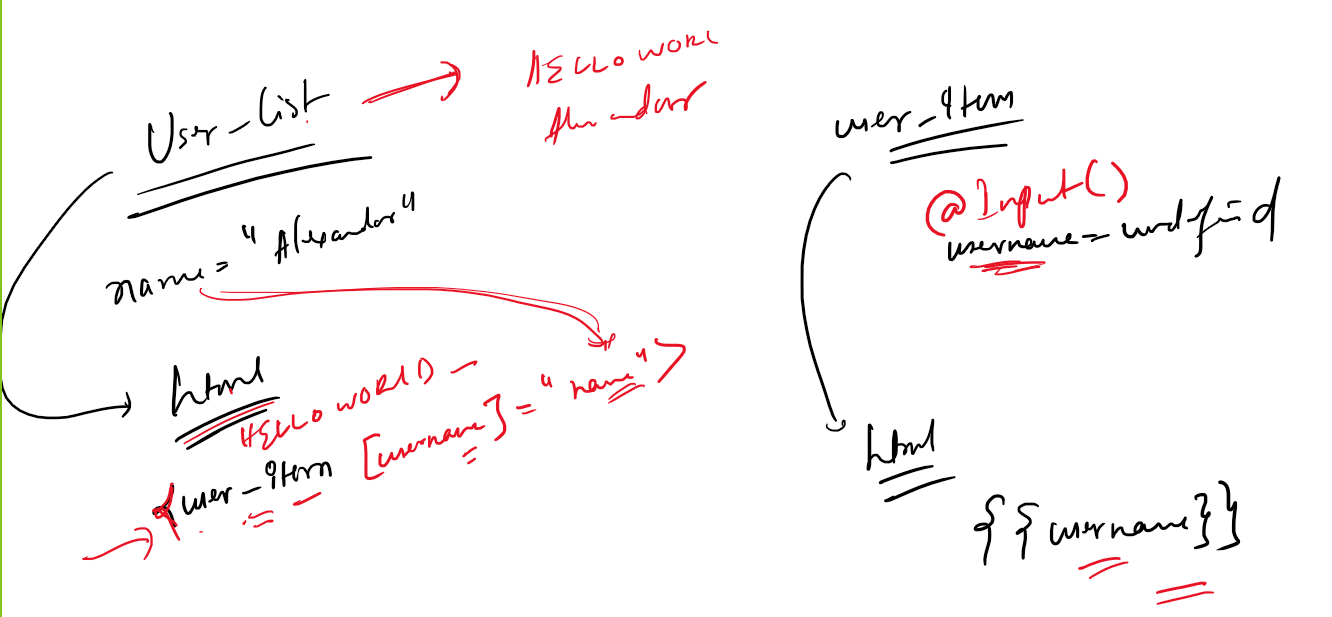 User_list
HELLO WORL
name = "Alexandar"
html
HELLO WORLD -
<user_item [username] = "name">
user_item
@Input()
username = undefined
html
{{username}}